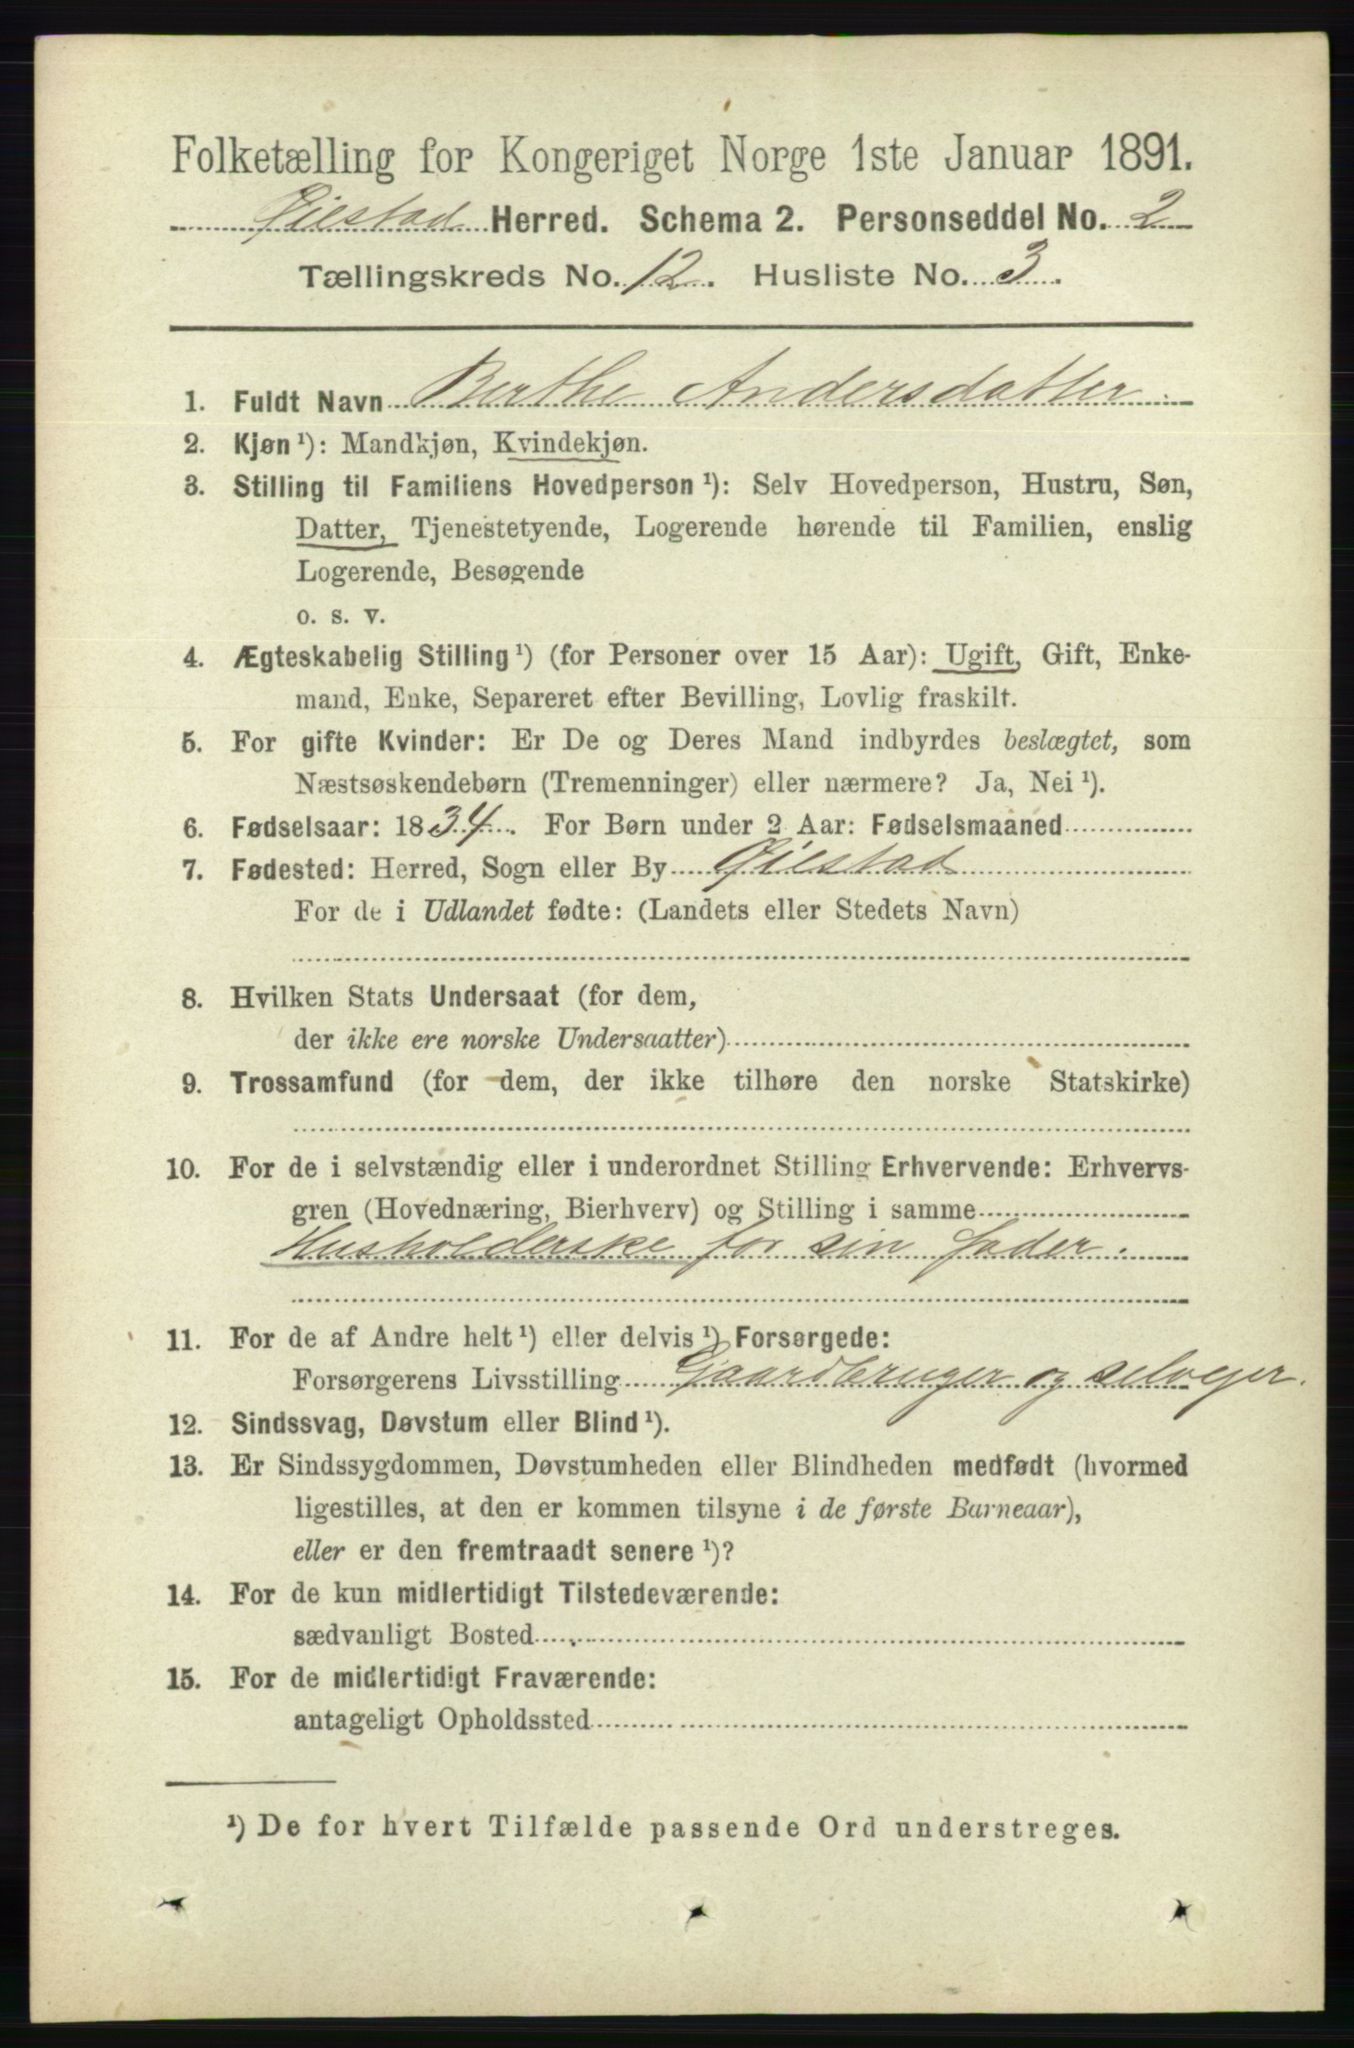 Folketælling for Kongeriget Norge 1ste Januar 1891.
Øiestad Herred. Schema 2. Personseddel No. 2
Tællingskreds No. 12. Husliste No. 3.
1. Fuldt Navn Berthe Andersdatter.
2. Kjøn ¹): Mandkjøn, Kvindekjøn.
3. Stilling til Familiens Hovedperson ¹): Selv Hovedperson, Hustru, Søn,
Datter, Tjenestetyende, Logerende hørende til Familien, enslig
Logerende, Besøgende
o. s. v.
4. Ægteskabelig Stilling ¹) (for Personer over 15 Aar): Ugift, Gift, Enke-
mand, Enke, Separeret efter Bevilling, Lovlig fraskilt.
5. For gifte Kvinder: Er De og Deres Mand indbyrdes beslægtet, som
Næstsøskendebørn (Tremenninger) eller nærmere? Ja, Nei ¹).
6. Fødselsaar: 1834. For Børn under 2 Aar: Fødselsmaaned
7. Fødested: Herred, Sogn eller By Øiestad
For de i Udlandet fødte: (Landets eller Stedets Navn)
8. Hvilken Stats Undersaat (for dem,
der ikke ere norske Undersaatter)
9. Trossamfund (for dem, der ikke tilhøre den norske Statskirke)
10. For de i selvstændig eller i underordnet Stilling Erhvervende: Erhvervs-
gren (Hovednæring, Bierhverv) og Stilling i samme
Husholderske for sin fader.
11. For de af Andre helt ¹) eller delvis ¹) Forsørgede:
Forsørgerens Livsstilling Gaardbruger og selvejer.
12. Sindssvag, Døvstum eller Blind ¹).
13. Er Sindssygdommen, Døvstumheden eller Blindheden medfødt (hvormed
ligestilles, at den er kommen tilsyne i de første Barneaar),
eller er den fremtraadt senere ¹)?
14. For de kun midlertidigt Tilstedeværende:
sædvanligt Bosted
15. For de midlertidigt Fraværende:
antageligt Opholdssted
¹) De for hvert Tilfælde passende Ord understreges.